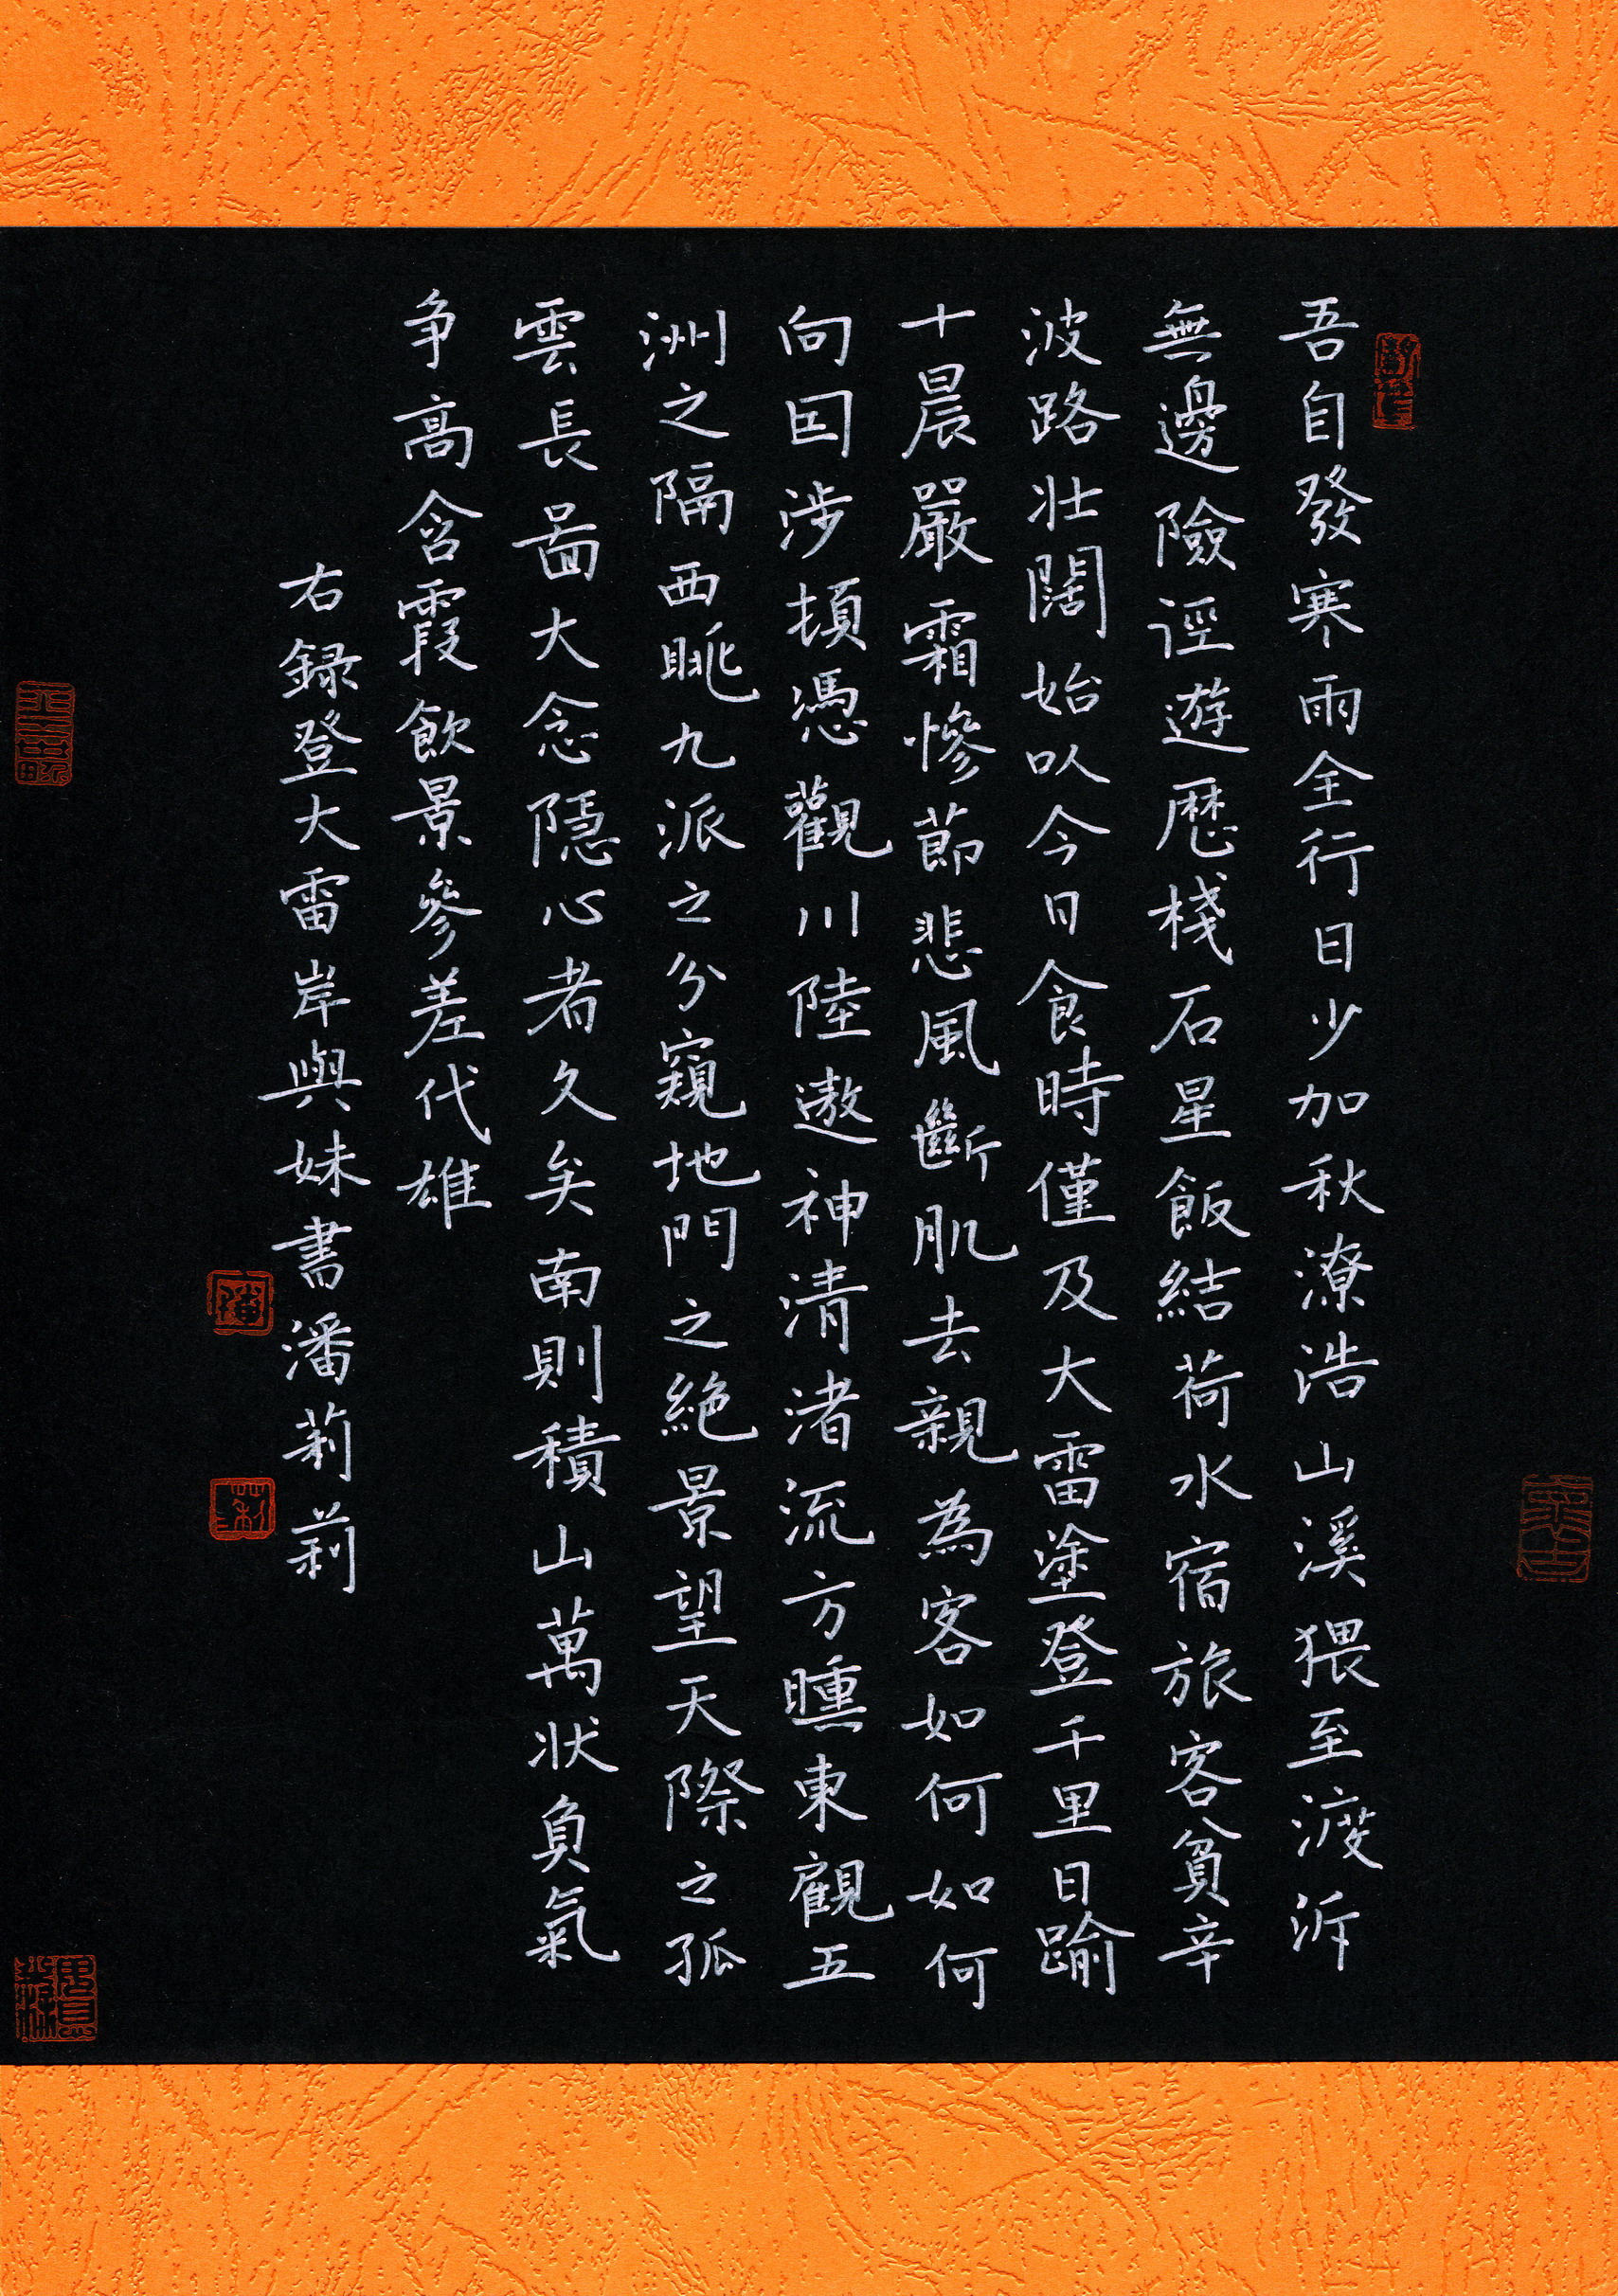 吾自發寒雨全行日少加秋潦浩山溪猥至渡泝
無邊險逕遊歷棧石星飯結荷水宿旅客貧辛
波路壯闊始以今日食時僅及大雷塗登千里日踰
十晨嚴霜慘節悲風斷肌去親為客如何如何
向因涉頓憑觀川陸遨神清渚流方曛東觀五
洲之隔西眺九派之分窺地門之絕景望天際之孤
雲長啚大念隱心者久矣南則積山萬狀負氣
争高含霞飲景參差代雄
右録登大雷岸與妹書潘莉莉